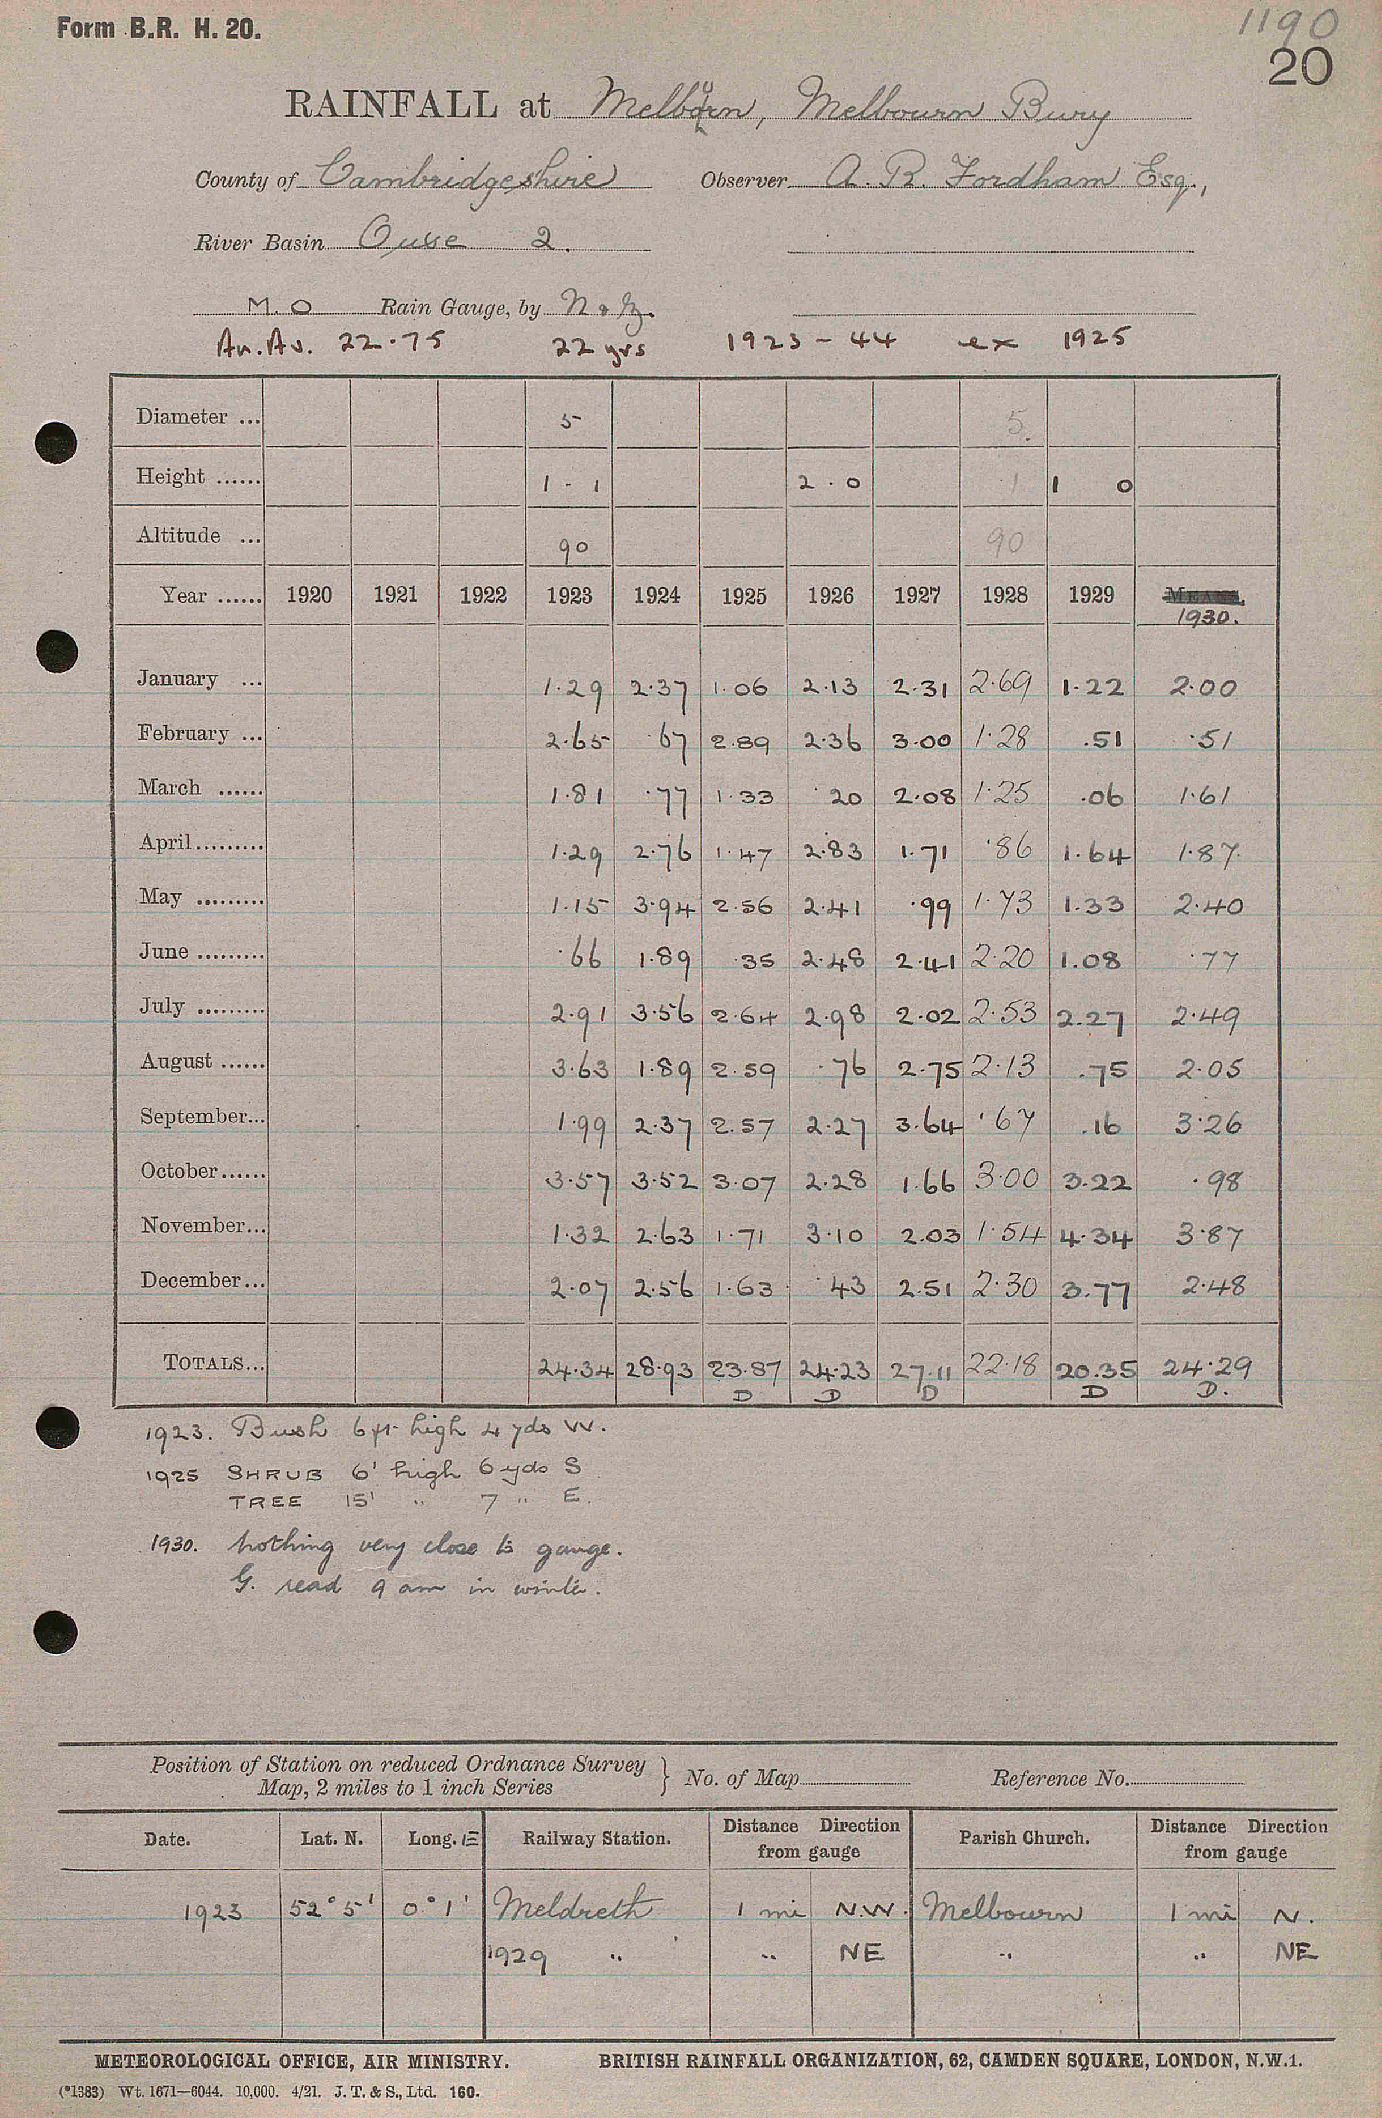 Form B.R. H. 20.
1190
20
RAINFALL at Melbourn, Melbourn Bury
County of Cambridgeshire Observer A. R. Fordham Esq.,
River Basin Ouse 2.
M.O Rain Gauge, by N & Z.
An. Av. 22.75 22 yrs 1923 - 44 ex 1925
Diameter ... 5 5.
Height ...... 1 - 1 2 . 0 1 1 0
Altitude ... 90 90
Year ...... 1920 1921 1922 1923 1924 1925 1926 1927 1928 1929 MEANS
1930.
January ... 1.29 2.37 1.06 2.13 2.31 2.69 1.22 2.00
February ... 2.65 .67 2.89 2.36 3.00 1.28 .51 .51
March ...... 1.81 .77 1.33 .20 2.08 1.25 .06 1.61
April......... 1.29 2.76 1.47 2.83 1.71 .86 1.64 1.87
May ......... 1.15 3.94 2.56 2.41 .99 1.73 1.33 2.40
June ......... .66 1.89 .35 2.48 2.41 2.20 1.08 .77
July ......... 2.91 3.56 2.64 2.98 2.02 2.53 2.27 2.49
August ...... 3.63 1.89 2.59 .76 2.75 2.13 .75 2.05
September... 1.99 2.37 2.57 2.27 3.64 .67 .16 3.26
October...... 3.57 3.52 3.07 2.28 1.66 3.00 3.22 .98
November... 1.32 2.63 1.71 3.10 2.03 1.54 4.34 3.87
December... 2.07 2.56 1.63 .43 2.51 2.30 3.77 2.48
TOTALS... 24.34 28.93 23.87 24.23 27.11 22.18 20.35 24.29
D D D D D.
1923. Bush 6 ft high 4 yds W.
1925 SHRUB 6' high 6 yds S
TREE 15' " 7 " E.
1930. Nothing very close to gauge.
G. read 9 am in winter.
Position of Station on reduced Ordnance Survey
Map, 2 miles to 1 inch Series } No. of Map Reference No.
Date. Lat. N. Long. E Railway Station. Distance Direction from gauge Parish Church. Distance Direction from gauge
1923 52° 5' 0° 1' Meldreth 1 mi N.W. Melbourn 1 mi N.
1929 " " NE " " NE
METEOROLOGICAL OFFICE, AIR MINISTRY. BRITISH RAINFALL ORGANIZATION, 62, CAMDEN SQUARE, LONDON, N.W.1.
(*1383) Wt. 1671—6044. 10,000. 4/21. J. T. & S., Ltd. 160.